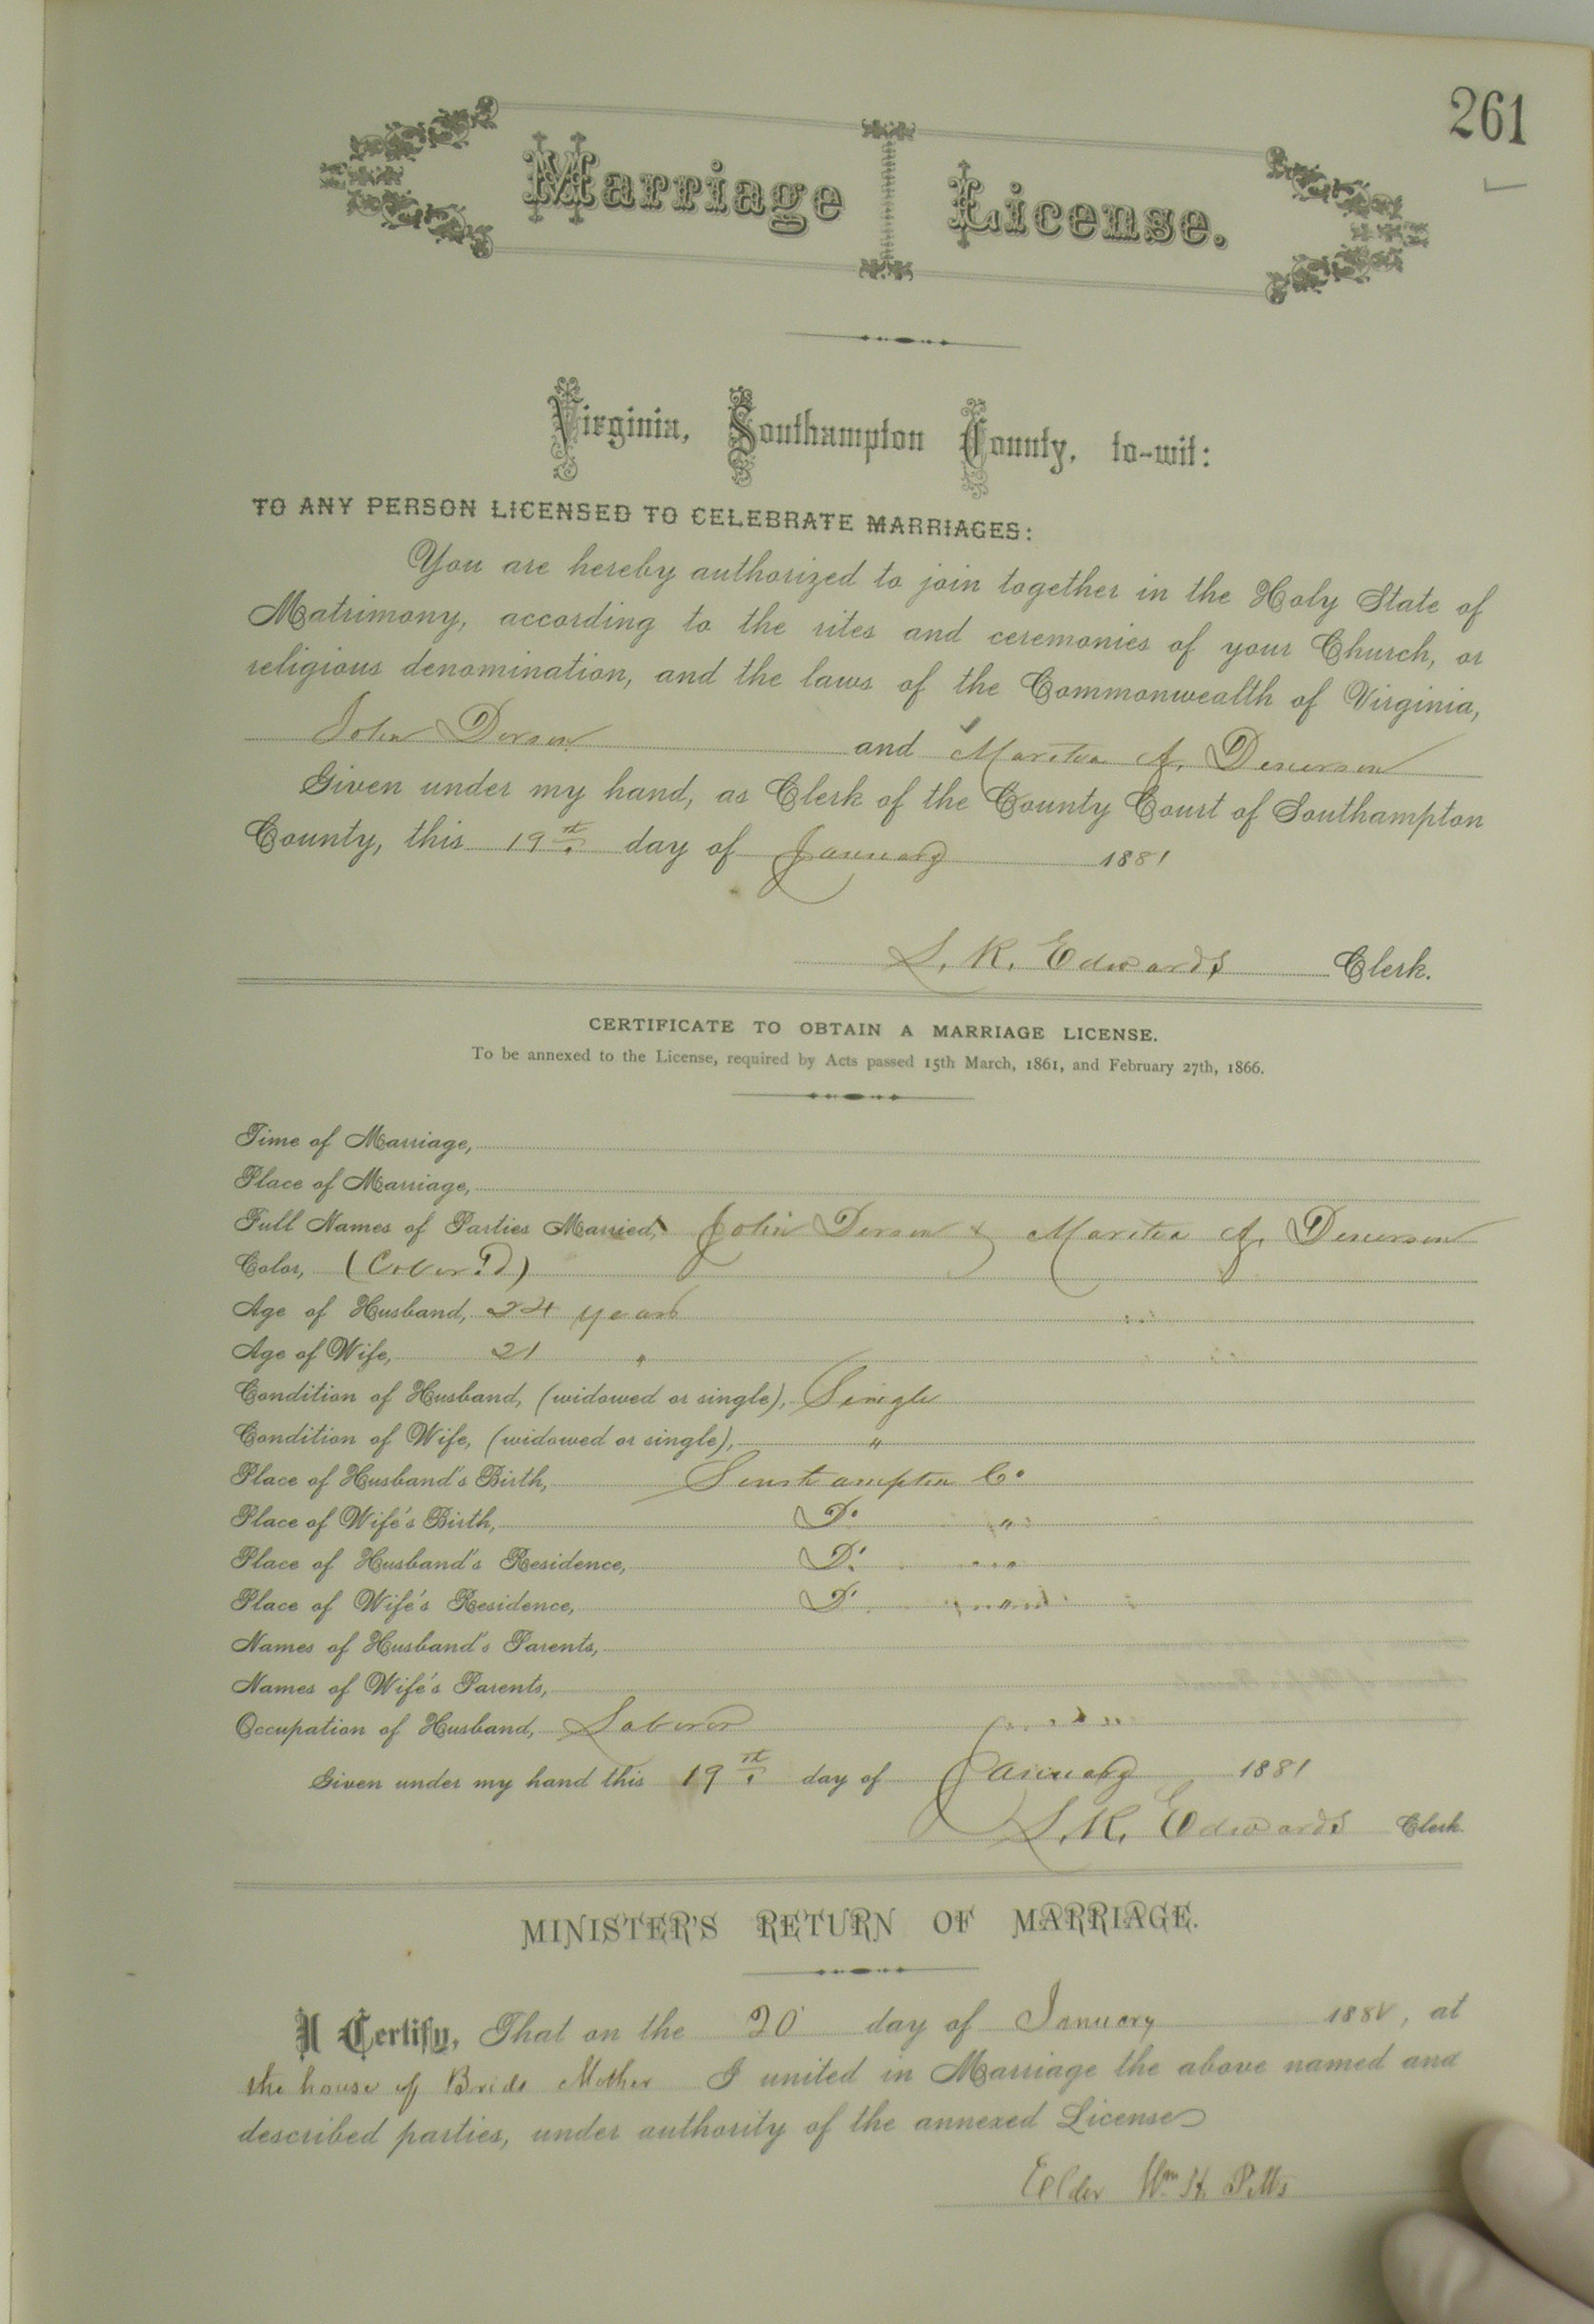 261
Marriage License.
Virginia, Southampton County, to-wit:
TO ANY PERSON LICENSED TO CELEBRATE MARRIAGES:
You are hereby authorized to join together in the Holy State of
Matrimony, according to the rites and ceremonies of your Church, or
religious denomination, and the laws of the Commonwealth of Virginia,
John and A.
Given under my hand, as Clerk of the County Court of Southampton
County, this 19th day of January 1881
L. R. Edwards Clerk.
CERTIFICATE TO OBTAIN A MARRIAGE LICENSE.
To be annexed to the License, required by Acts passed 15th March, 1861, and February 27th, 1866.
Time of Marriage,
Place of Marriage,
Full Names of Parties Married, John & A.
Color, (Color'd)
Age of Husband, 24 years
Age of Wife, 21 "
Condition of Husband, (widowed or single), Single
Condition of Wife, (widowed or single), "
Place of Husband's Birth, Southampton Co
Place of Wife's Birth, Do "
Place of Husband's Residence, Do "
Place of Wife's Residence, Do "
Names of Husband's Parents,
Names of Wife's Parents,
Occupation of Husband, Laborer
Given under my hand this 19th day of January 1881
L. R. Edwards Clerk.
MINISTER'S RETURN OF MARRIAGE.
I Certify, That on the 20 day of January 1881, at
the house of Brids Mother I united in Marriage the above named and
described parties, under authority of the annexed License
Elder Wm H. Pitts